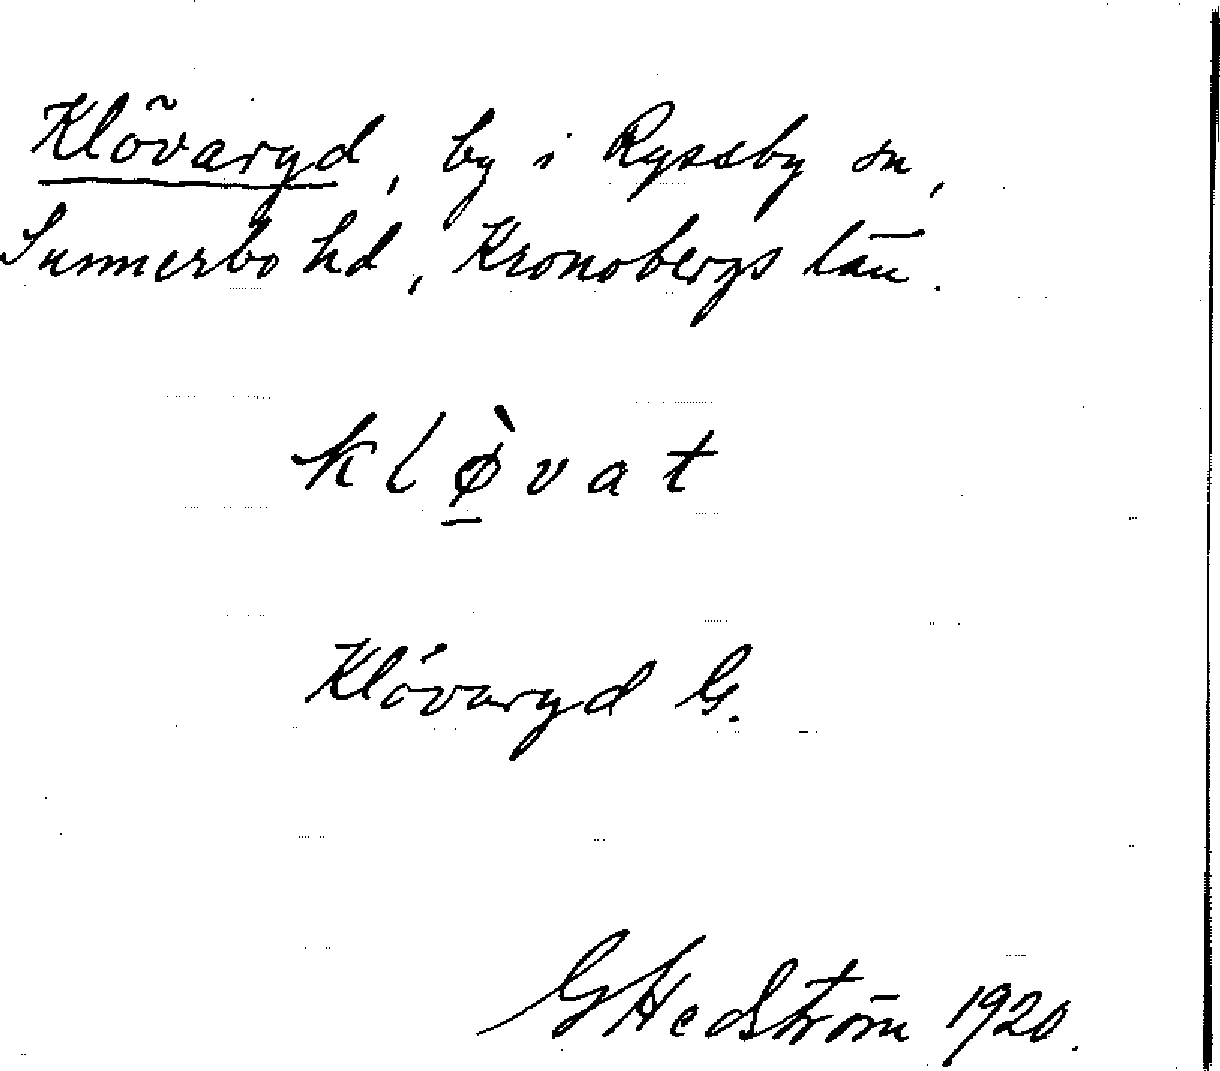 Klövaryd, by i Ryssby sn,
Sunnerbo hd, Kronobergs län.
klø̠̀vat
Klövaryd G.
G Hedström 1920.